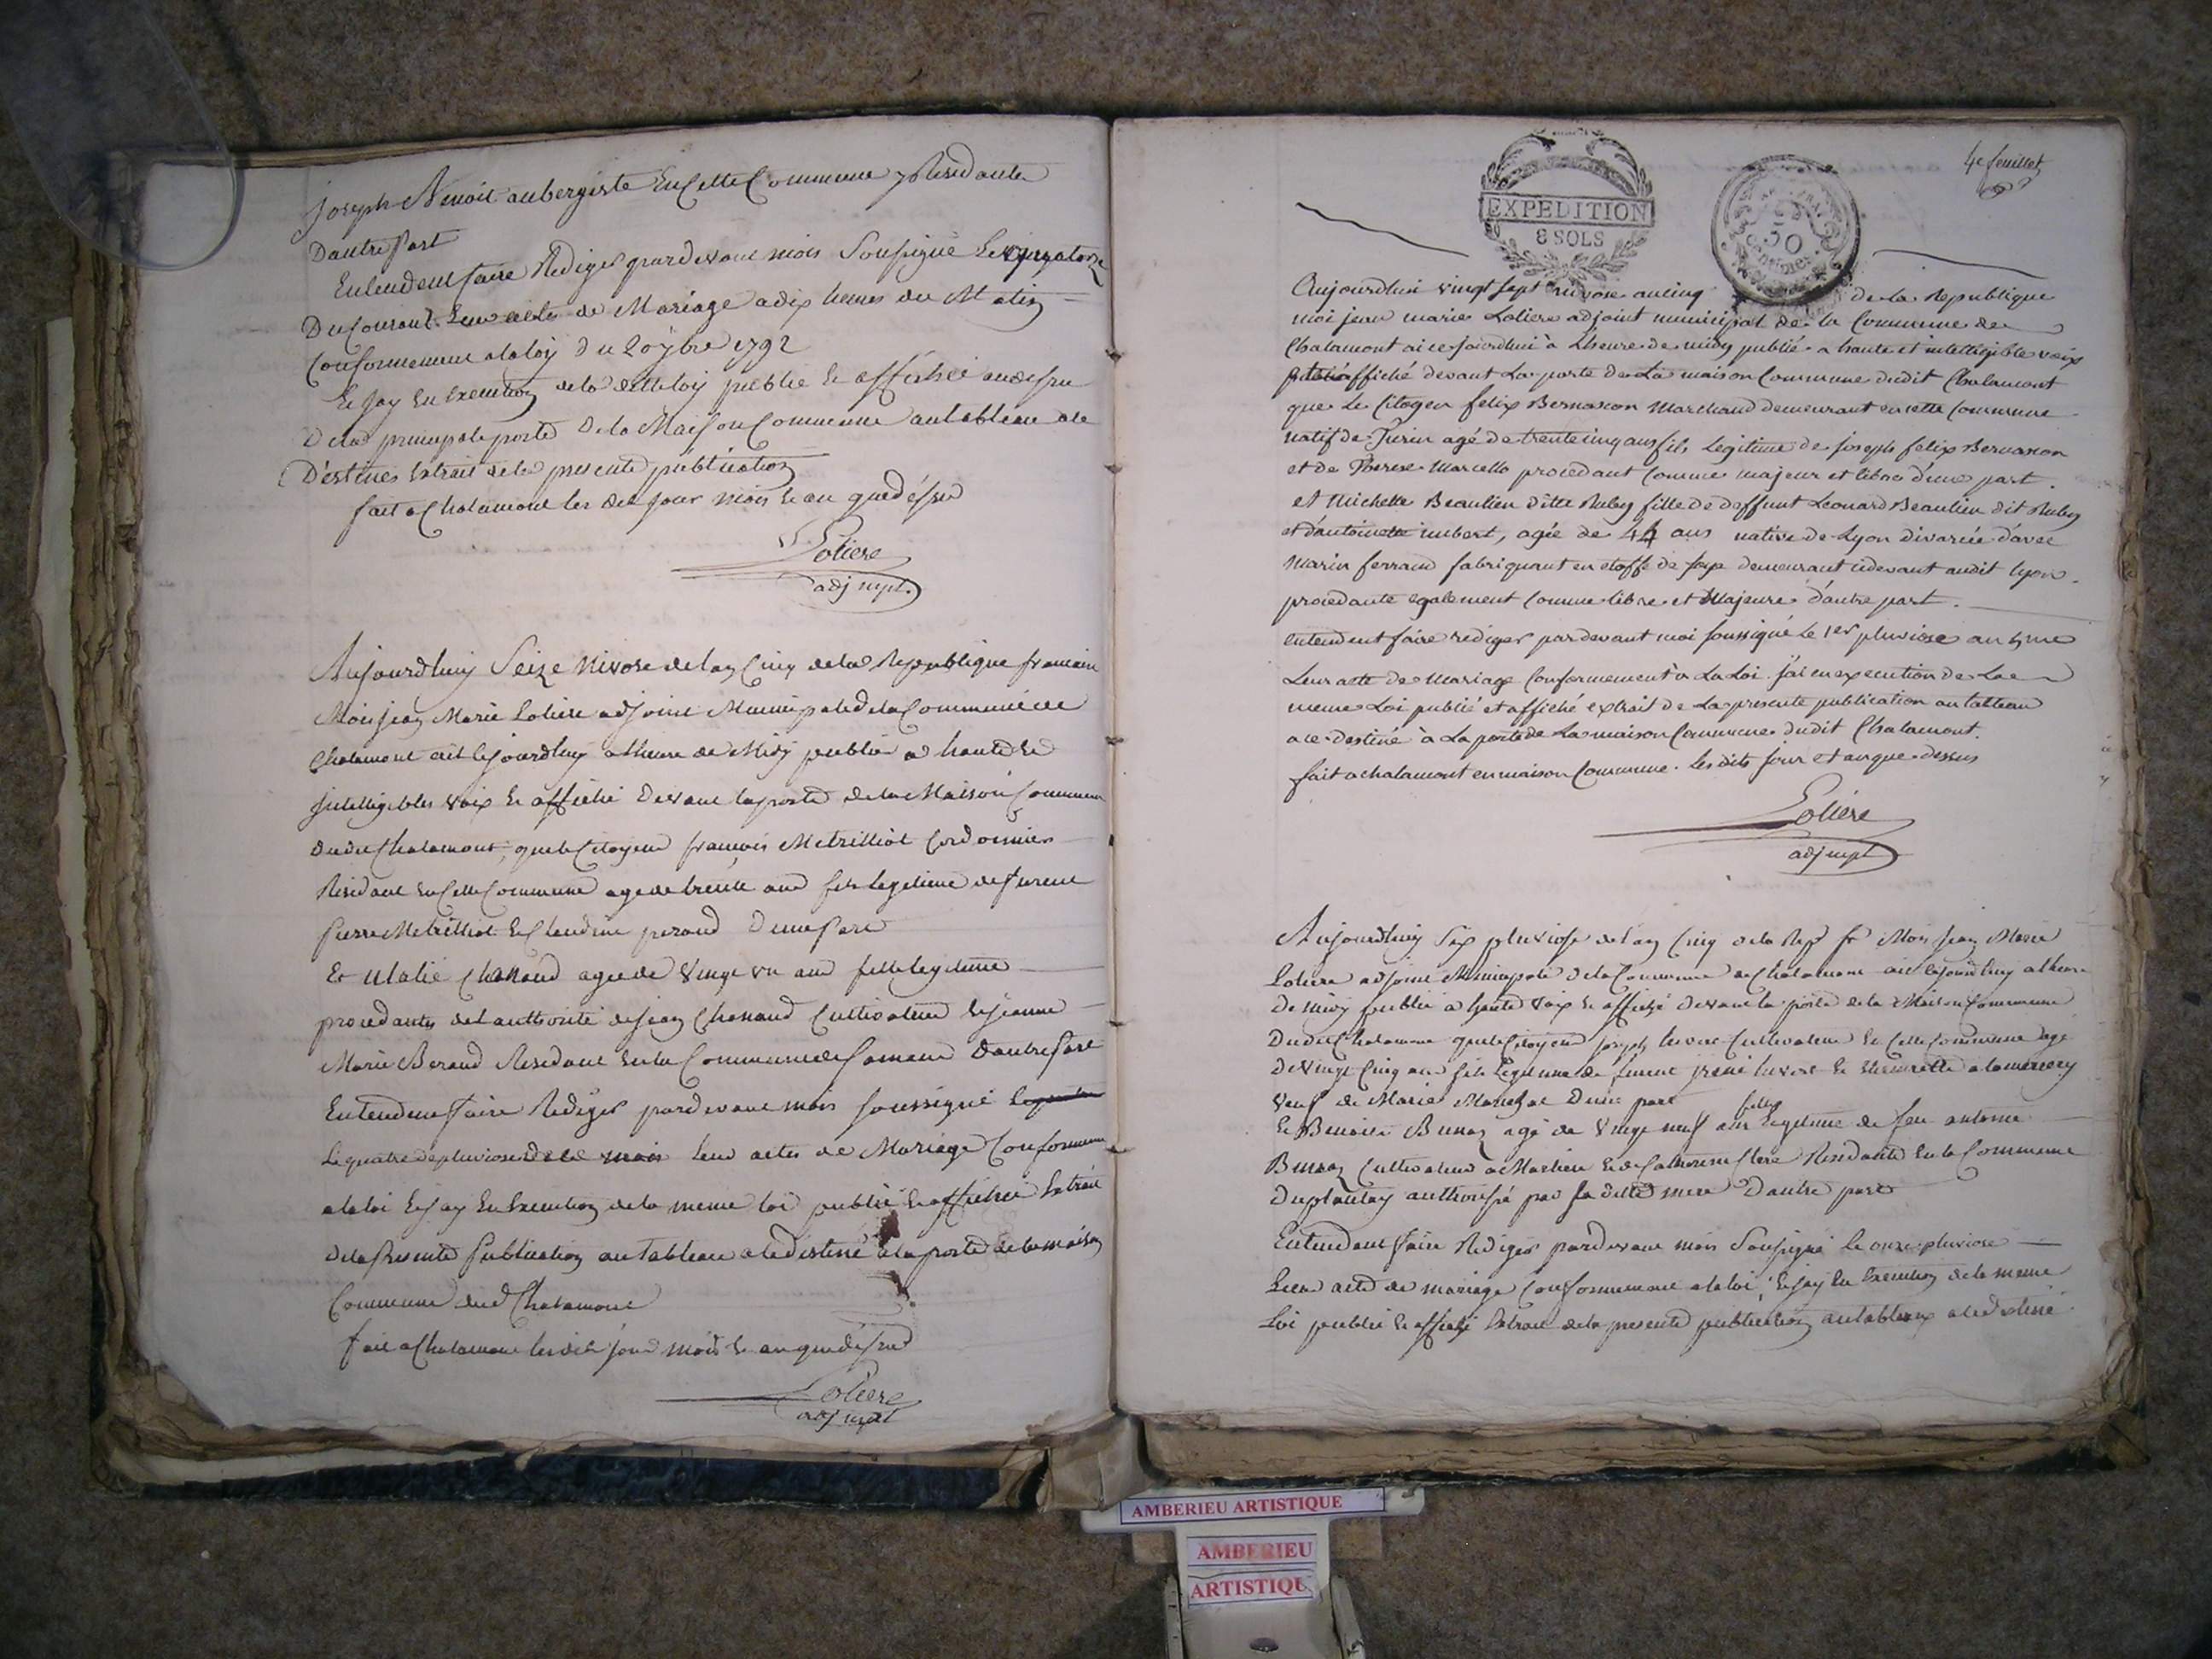 joseph Benoit aubergiste En Cette Commune y Residante
D'autre Part
Entendent faire Rediger pardevant mois Soussigné Le quatorze
Du Courant Leur actes de Mariage a dix heures du Matin
Conformement a la loy du 20 7bre 1792
Et Jay En Execution de la ditte loy publie et affiché audessu
De la principale porte De la Maison Commune au tableau ale
Destinés Extrait de la presente publication
fait a Chalamont les dit jour mois et an que dessu
Loliere
adj mpl.
Aujourdhuy Seize Nivose de lan Cinq de la Republique francaise
Mois jean Marie Loliere adjoint Municipale de la Commune de
Chalamont ait cejourdhuy a lheure de Midy publié a haute et
Intelligibles voix et affiché Devant la porte de la Maison Commune
dudit Chalamont, que le Citoyend francois Metrilliot Cordonnier
Residant En Cette Commune age de trente ans fils legitime de furent
pierre Metrilliot et Claudine perond D'une part
Et Ulalie Chanaud agee de Vingt un ans fille legitime
procedantes de lauthorité de jean Chanaud Cultivateur et jeanne
Marie Beraud Residant En la Commune de D'autre part
Entendent faire Rediger pardevant mois soussigné
Le quatre de pluviose de ce mois leur actes de Mariage Conformement
a la loi Et jay En Execution de la meme loi publié et affiché Extrait
De la Presente Publication au Tableau a ce destiné a la porte de la maison
Commune dud Chalamont
fait a Chalamont les dits jour mois et an que dessu
Loliere
adj mpl
4e feuillet
EXPEDITION
8 SOLS
50
Centimes
Aujourdhui vingt sept nivose an cinq de la Republique
moi jean marie Loliere adjoint municipal de la Commune de
Chalamont ai ce jourdhui à Lheure de midy publié a haute et intelligible voix
et affiché devant La porte de La maison Commune dudit Chalamont
que Le Citoyen felix Bernascon Marchand demeurant en cette Commune
natif de Turin agé de trente cinq ans fils Legitime de joseph felix Bernascon
et de Therese Marcello procedant Comme majeur et libre d'une part.
et Michelle Beaulieu ditte Ruby fille de deffunt Leonard Beaulieu dit Ruby
et d'antoinette imbert, agée de 44 ans native de Lyon divorcée d'avec
Marin ferrand fabriquant en etoffe de soye demeurant cidevant audit Lyon.
procedante egalement Comme libre et Majeure d'autre part.
entendent faire rediger pardevant moi soussigné Le 1er pluviose an 5me
Leur acte de mariage Conformement à La Loi. j'ai en execution de La
meme Loi publié et affiché extrait de La presente publication au tableau
a ce destiné à La porte de La maison Commune dudit Chalamont.
fait a chalamont en maison Commune. Les dits jour et an que dessus
Loliere
adj mpl
Aujourdhuy Six pluviose de lan Cinq de la Rep fr Mois jean Marie
Loliere adjoint Municipale de la Commune de Chalamont ait cejourdhuy a lheure
De midy publié a haute voix et affiché Devant la porte de la Maison Commune
Dudit Chalamont que le Citoyend joseph Cultivateur En Cette Commune age
De vingt Cinq ans fils Legitime de furent et
veuf de Marie D'une part
Et Benoite Bunaz agé de Vingt neuf ans fille Legitime de feu antoine
Bunaz Cultivateur a et de Catherine Clere Residante En la Commune
Duplantay authorisé par sa ditte mere D'autre part
Entendent faire Rediger pardevant mois Soussigné le onze pluviose
Leur acte de mariage Conformement a la loi, Et jay En Execution de la meme
Loi publié et affiché Extrait de la presente publication au tableaux a ce destiné
AMBERIEU ARTISTIQUE
AMBERIEU
ARTISTIQU